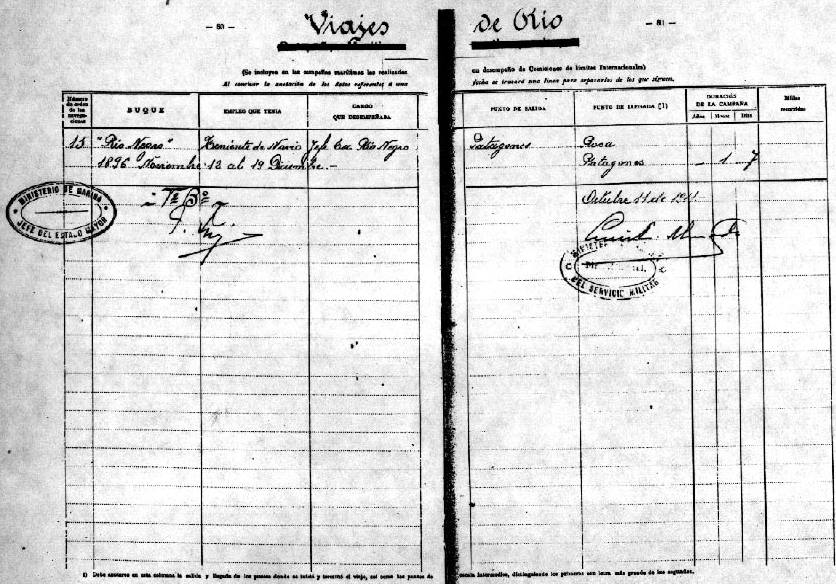 — 80 —
Viajes
(Se incluyen en las campañas marítimas las realizadas
Al concluir la anotación de los datos referentes á una
Número de orden de las navegaciones
BUQUE
EMPLEO QUE TENIA
CARGO QUE DESEMPEÑABA
13 "Rio Negro" Teniente de Navio Jefe Esc. Rio Negro
1896 Noviembre 12 al 19 Diciembre. —
MINISTERIO DE MARINA
JEFE DEL ESTADO MAYOR
1) Debe anotarse en esta columna la salida y llegada de los puntos donde se inició y terminó el viaje, así como los puntos de
— 81 —
de Rio
en desempeño de Comisiones de límites Internacionales)
fecha se trazará una línea para separarlos de los que siguen.
PUNTO DE SALIDA
PUNTO DE LLEGADA (1)
DURACIÓN DE LA CAMPAÑA
Años Meses Días
Millas recorridas
Patagones Roca
Patagones — 1 — 7
Octubre 11 de 1911
DEL SERVICIO MILITAR
escala intermedios, distinguiendo los primeros con letra más grande de los segundos.